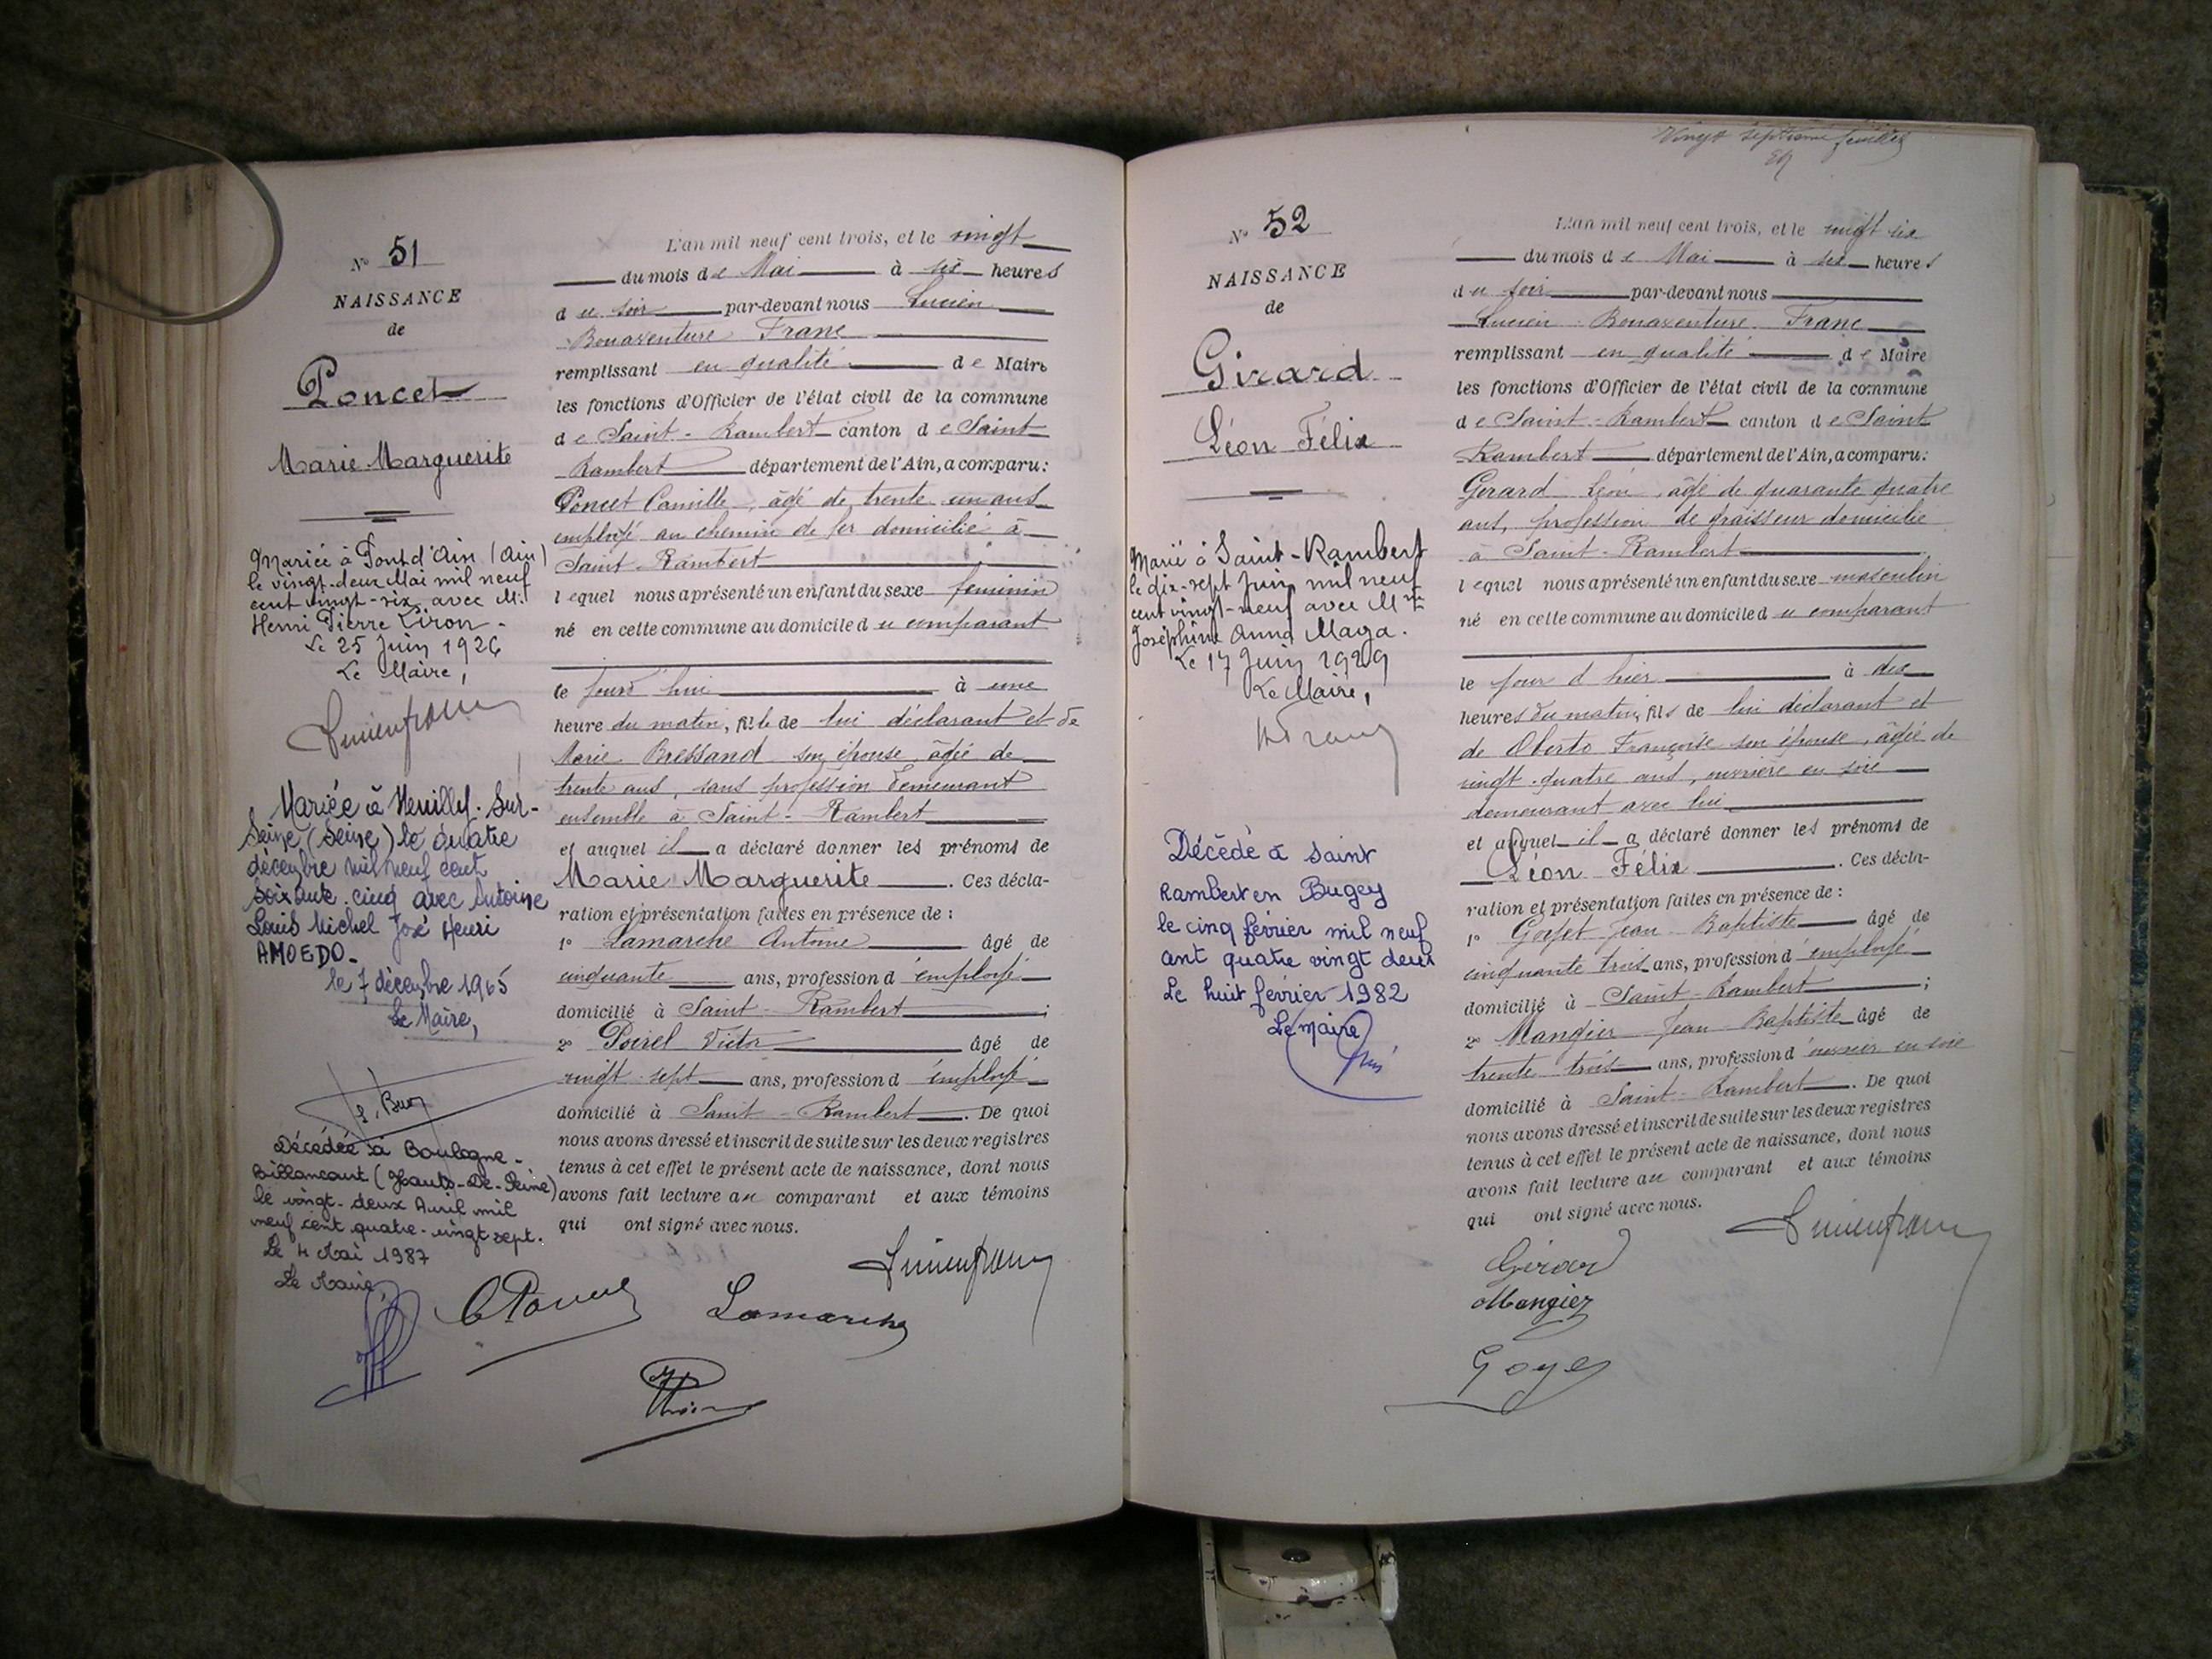 N° 51
NAISSANCE
de
Poncet
Marie-Marguerite
Mariée à Pont d'Ain (Ain)
le vingt-deux Mai mil neuf
cent vingt-six avec M.
Henri Pierre
Le 25 Juin 1926
Le Maire,
Mariée à Neuilly-Sur-
Seine (Seine) le quatre
décembre mil neuf cent
soixante-cinq avec Antoine
Louis Michel José Henri
AMOEDO_
le 7 décembre 1965
Le Maire,
Décédée à Boulogne-
Billancourt (Hauts-De-Seine)
le vingt-deux Avril mil
neuf cent quatre-vingt sept.
Le 4 Mai 1987
Le Maire,
L'an mil neuf cent trois, et le vingt
du mois de Mai à six heures
du soir par-devant nous Lucien
Bonaventure Franc
remplissant en qualité de Maire
les fonctions d'Officier de l'état civil de la commune
de Saint-Rambert canton de Saint
Rambert département de l'Ain, a comparu:
Poncet Camille, âgé de trente un ans
employé au chemin de fer domicilié à
Saint Rambert
lequel nous a présenté un enfant du sexe feminin
né en cette commune au domicile du comparant
le jourd'hui à une
heure du matin, fille de lui déclarant et de
Marie Bressand son épouse âgée de
trente ans, sans profession demeurant
ensemble à Saint-Rambert
et auquel il a déclaré donner les prénoms de
Marie Marguerite. Ces décla-
ration et présentation faites en présence de :
1° Lamarche Antoine âgé de
cinquante ans, profession d'employé
domicilié à Saint-Rambert;
2° Poirel Victor âgé de
vingt-sept ans, profession d'employé
domicilié à Saint-Rambert. De quoi
nous avons dressé et inscrit de suite sur les deux registres
tenus à cet effet le présent acte de naissance, dont nous
avons fait lecture au comparant et aux témoins
qui ont signé avec nous.
Lucien Franc
C Poncet
Lamarche
Vingt septième feuillet
N° 52
NAISSANCE
de
Girard
Léon Félix
Marié à Saint-Rambert
le dix-sept Juin mil neuf
cent vingt-neuf avec Mlle
Joséphine Anna Maga.
Le 17 Juin 1929
Le Maire,
Décédé à Saint
Rambert en Bugey
le cinq février mil neuf
cent quatre vingt deux
Le huit février 1982
Le maire
L'an mil neuf cent trois, et le vingt six
du mois de Mai à six heures
du soir par-devant nous
Lucien Bonaventure Franc
remplissant en qualité de Maire
les fonctions d'Officier de l'état civil de la commune
de Saint-Rambert canton de Saint
Rambert département de l'Ain, a comparu:
Gerard Léon, âgé de quarante quatre
ans, profession de graisseur domicilié
à Saint-Rambert
lequel nous a présenté un enfant du sexe masculin
né en cette commune au domicile du comparant
le jour d'hier à dix
heures du matin, fils de lui déclarant et
de Oberto Françoise son épouse, âgée de
vingt-quatre ans, ouvrière en soie
demeurant avec lui
et auquel il a déclaré donner les prénoms de
Léon Félix. Ces décla-
ration et présentation faites en présence de :
1° Goyet Jean Baptiste âgé de
cinquante trois ans, profession d'employé
domicilié à Saint-Rambert;
2° Mangier Jean Baptiste âgé de
trente trois ans, profession d'ouvrier en soie
domicilié à Saint-Rambert. De quoi
nous avons dressé et inscrit de suite sur les deux registres
tenus à cet effet le présent acte de naissance, dont nous
avons fait lecture au comparant et aux témoins
qui ont signé avec nous.
Lucien Franc
Girard
Mangier
Goyet